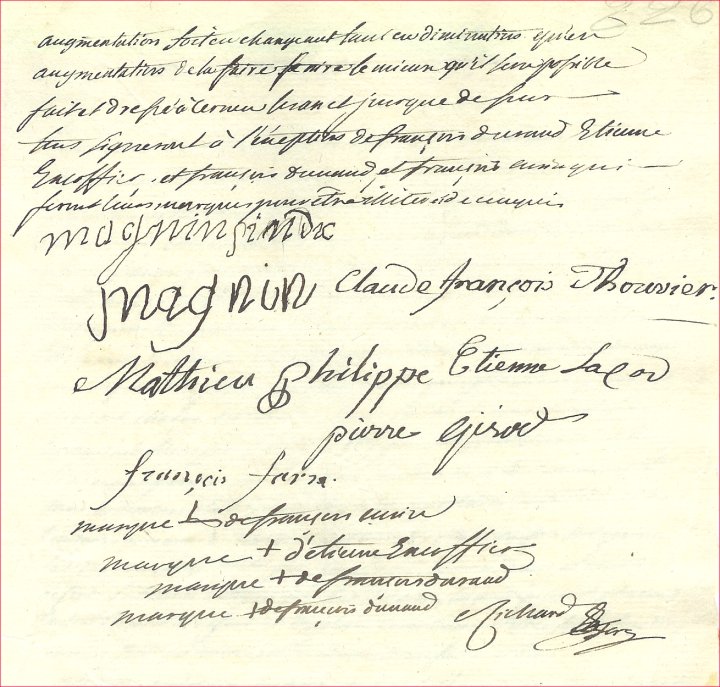 226
augmentation soit en changeant tant en diminution qu'en
augmentation de la faire le mieux qu'il sera possible
fait et dressé à cerneu les an et jour que dessus
tous signeront à l'éception de françois dunand Etienne
Encoffier, et françois dunand, et françois qui
feront leurs marques pour être illiterés de ce enquis
magnin sindic
magnin Claude françois Thouvier
Mathieu Philippe Etienne
pierre Girod
françois
marque de françois
marque + d'etienne Encoffier
marque + de francois dunand
marque + de françois dunand Richard